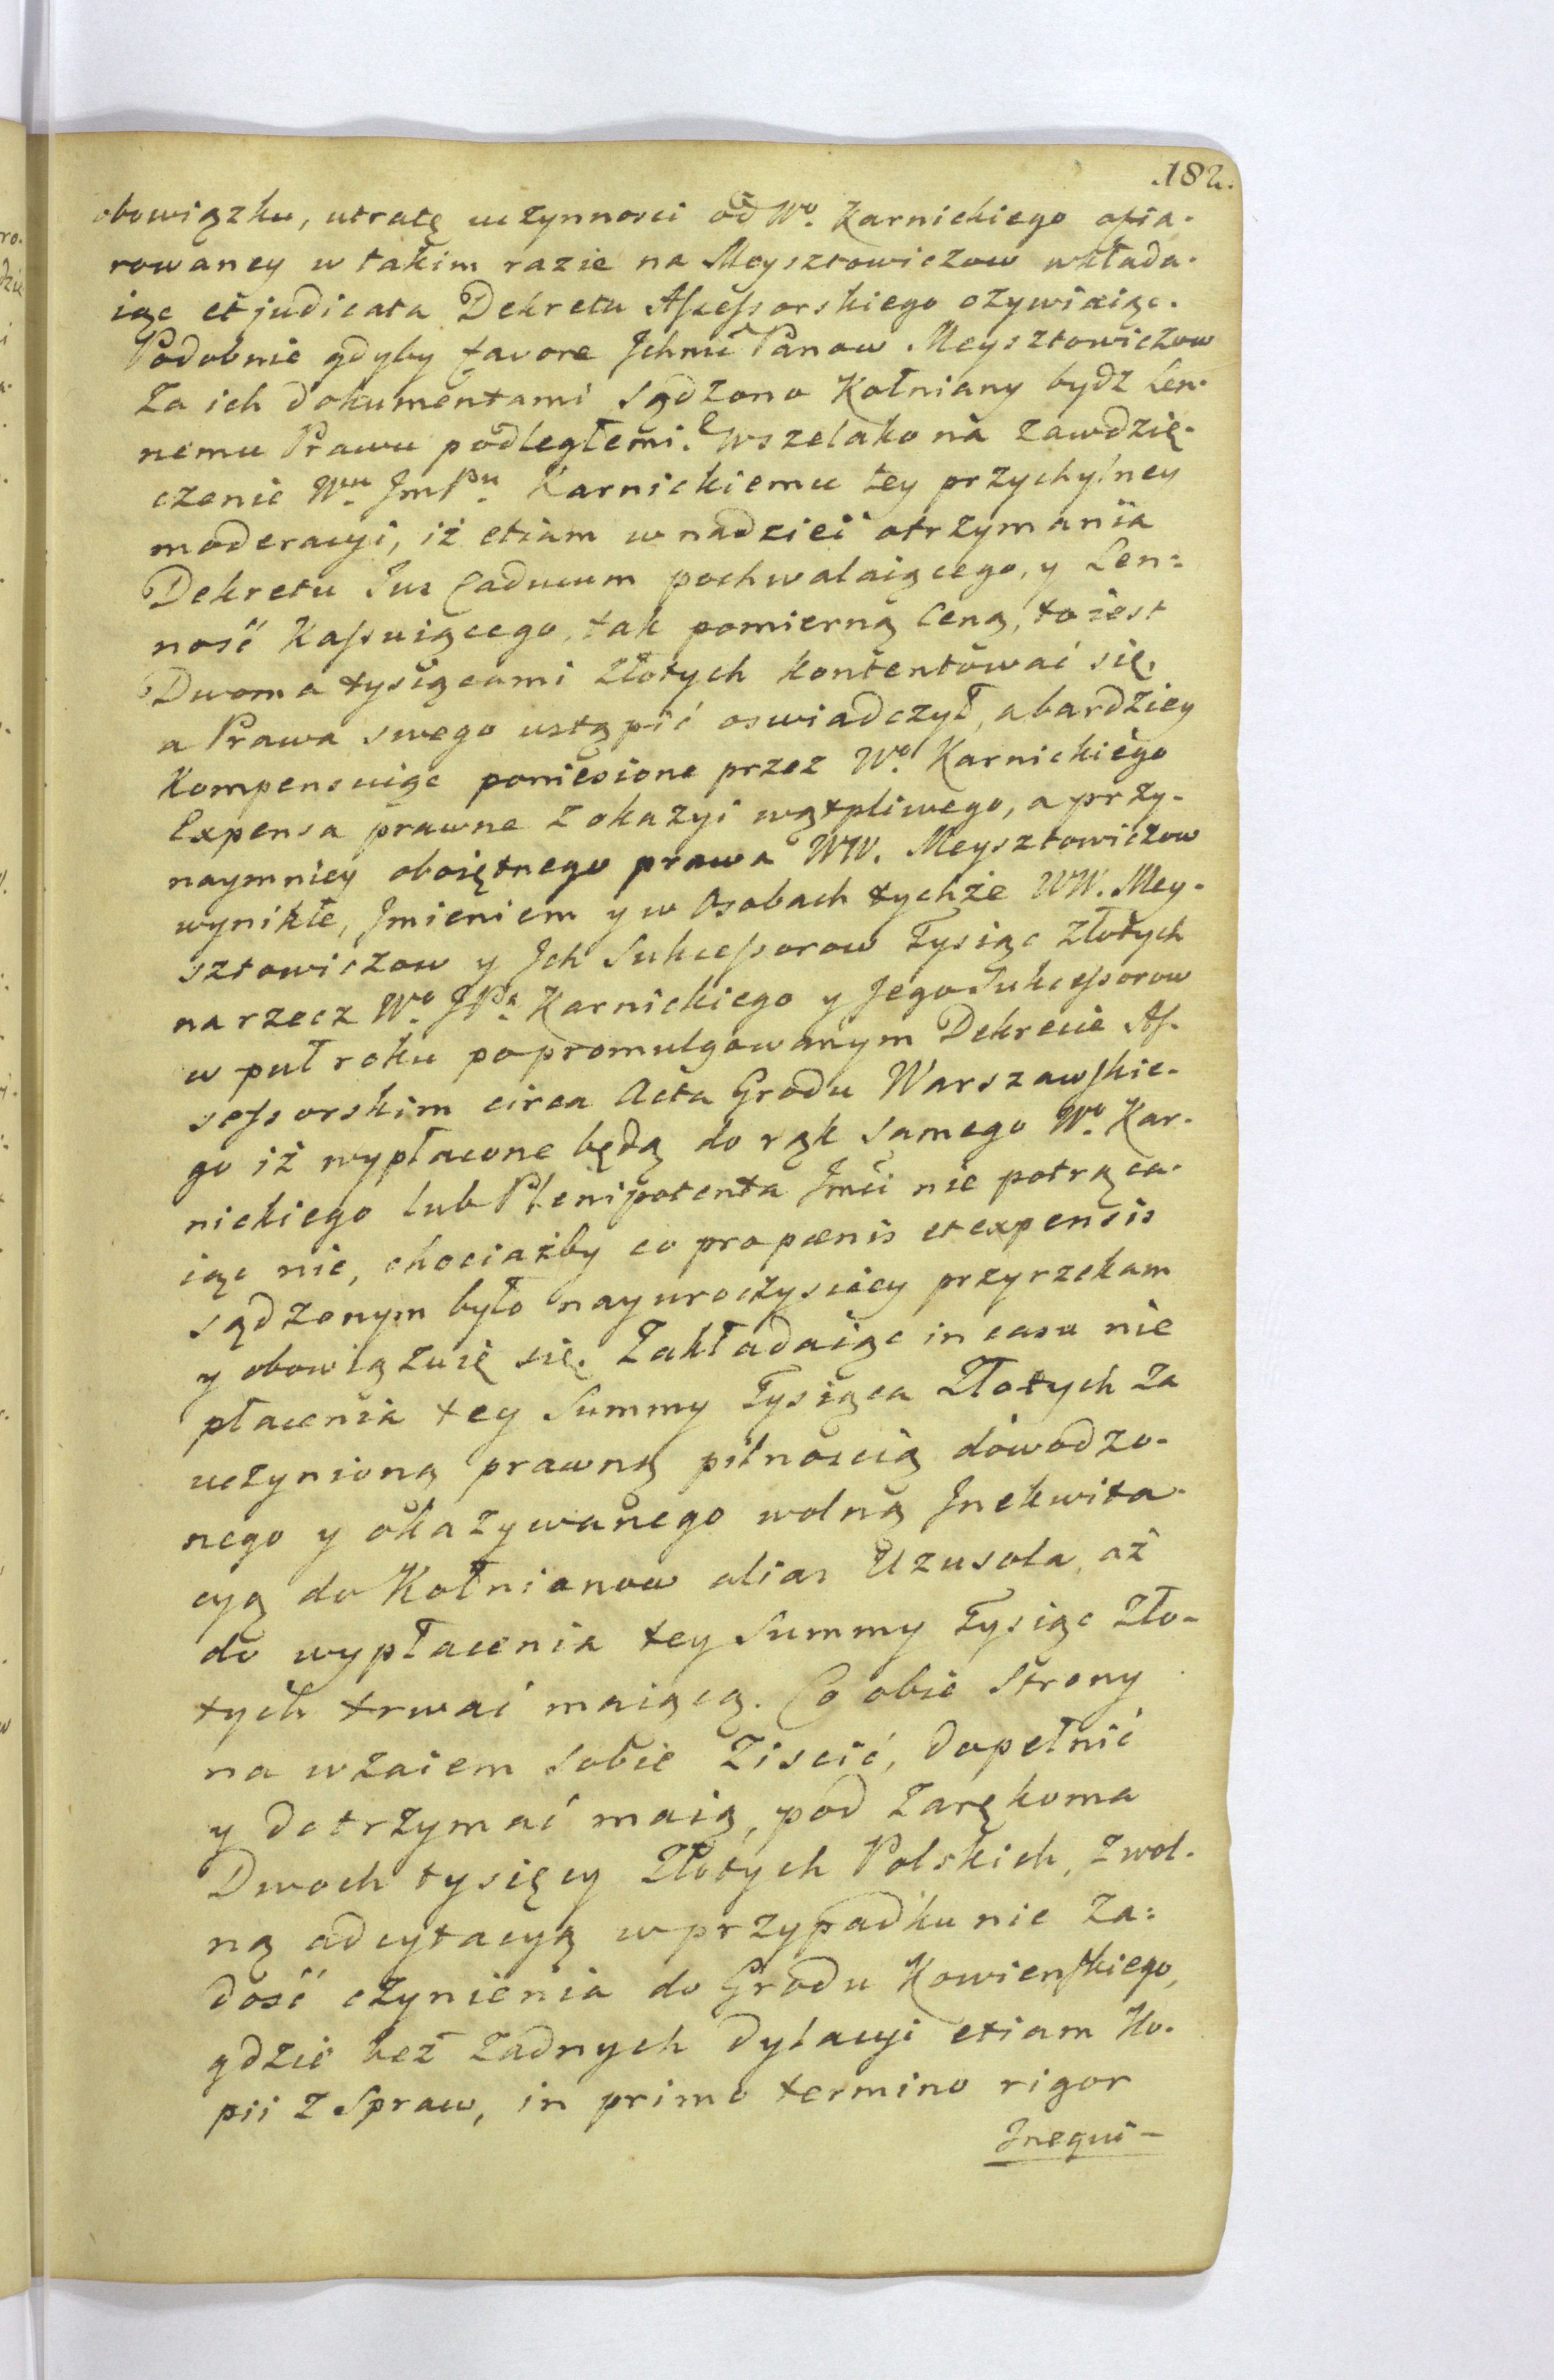 182.
obowiązku, utratę uczynnosci od Wo. Karnickiego ofia-
rowaney w takim razie na Meysztowiczow wkłada-
iąc et judicata Dekretu Assessorskiego ożywiaiąc.
Podobnie gdyby favore Ichmć Panow Meysztowiczow
Za ich dokumentami Sądzono Kołniany bydz Len-
nemu Prawu podległemi. Wszelako na Zawdzię-
czenie Wu. ImPu. Karnickiemu tey przychylney
moderacyi, iż etiam w nadziei otrzymania
Dekretu Ius Caducum pochwalaiącego, y Len=
ność Kassuiącego, tak pomierną Ceną, to iest
Dwoma tysiącami Złotych kontentować się,
a Prawa swego ustąpić oswiadczył, a bardziey
Kompensuiąc poniesione przez Wo. Karnickiego
Expensa prawne Z okazyi wątpliwego, a przy-
naymniey oboiętnego prawa WW. Meysztowiczow
wynikłe, Imieniem y w Osobach tychże WW. Mey-
sztowiczow y Ich Sukcessorow Tysiąc Złotych
na rzecz Wo. JPa. Karnickiego y Jego Sukcessorow
w puł roku po promulgowanym Dekrecie As-
sessorskim circa Acta Grodu Warszawskie-
go iż wypłacone będą do rąk Samego Wo. Kar-
nickiego lub Plenipotenta Jmci nie potrąca-
iąc nic, chociażby co pro pœnis et expensis
sądzonym było nayuroczysciey przyrzekam
y obowiązuię się. Zakładaiąc in casu nie
płacenia tey Summy Tysiąca Złotych Za
uczynioną prawną pilnoscią dowodzo-
nego y okazywanego wolną Inekwita-
cyą do Kołnianow alias Uzusola, aż
do wypłacenia tey Summy Tysiąc Zło-
tych trwać maiącą. Co obie Strony
na wzaiem Sobie Ziscić, dopełnić
y dotrzymać maią, pod Zarękoma
Dwoch tysięcy Złotych Polskich, Z wol-
ną adcytacyą w przypadku nie Za=
dość czynienia do Grodu Kowienskiego,
gdzie bez Zadnych dylacyi etiam Ko-
pii Z Spraw, in primo termino rigor
Inequi-